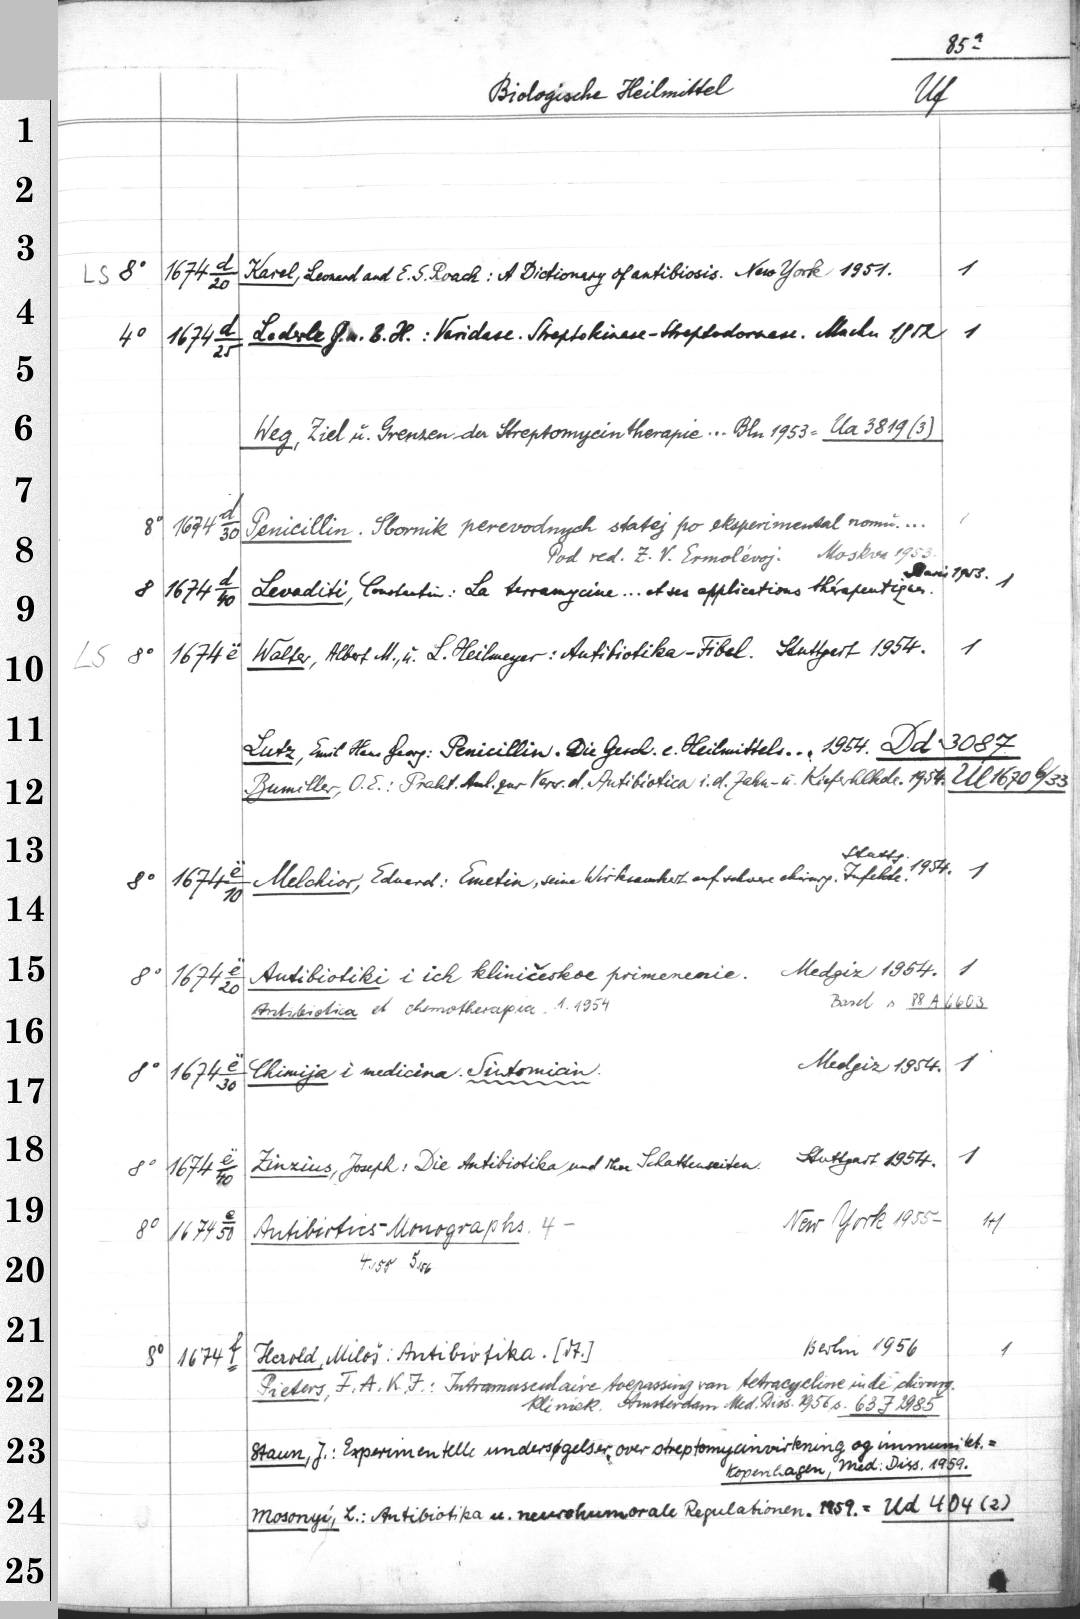 85a
Biologische Heilmittel Uf
1
2
3
LS 8° 1674 d/20 Karel, Leonard and E. S. Roach : A Dictionary of antibiosis. New York 1951. 1
4
4° 1674 d/25 Lederle : Varidase. Streptokinase-Streptodornase. 1952 1
5
6
Weg, Ziel u. Grenzen der Streptomycintherapie ... Bln 1953 = Ua 3819 (3)
7
8° 1674 d/30 Penicillin. Sbornik perevodnych statej po eksperimental'nomu ...
8
Pod red. Z. V. Ermol'evoj. Moskva 1953.
Paris 1953.
8 1674 d/40 Levaditi, Constantin : La terramycine ... et ses applications thérapeutiques. 1
9
LS 8° 1674 ë Walter, Albert M., u. L. Heilmeyer : Antibiotika-Fibel. Stuttgart 1954. 1
10
11
Lutz, Emil Hans Georg : Penicillin. Die Gesch. e. Heilmittels ... 1954. Dd 3087
12
Bumiller, O. E. : Prakt. Anl. zur Verw. d. Antibiotica i. d. Zahn- u. Kieferhlkde. 1954. Ul 1670 b/33
13
Stuttg.
8° 1674 ë/10 Melchior, Eduard : Emetin, seine Wirksamkeit auf schwere chirurg. Infekte. 1954. 1
14
15
8° 1674 ë/20 Antibiotiki i ich kliničeskoe primenenie. Medgiz 1954. 1
Antibiotica et chemotherapia. 1. 1954 Basel s 88 A 6603
16
8° 1674 ë/30 Chimija i medicina. Sintomicin. Medgiz 1954. 1
17
18
8° 1674 ë/40 Zinzius, Joseph : Die Antibiotika und ihre Schattenseiten. Stuttgart 1954. 1
19
8° 1674 e/50 Antibiotics-Monographs. 4 – New York 1955– 1+1
20
4.155 5.156
21
8° 1674 f Herold, Miloš : Antibiotika. [dt.] Berlin 1956 1
22
Pieters, F. A. K. F. : Intramusculaire toepassing van tetracycline in de chirurg.
kliniek. Amsterdam Med. Diss. 1956 s. 63 J 2985
23
Staun, J. : Experimentelle undersøgelser over streptomycinvirkning og immunitet. =
Kopenhagen, Med. Diss. 1959.
24
Mosonyi, L. : Antibiotika u. neurohumorale Regulationen. 1959. = Ud 404 (2)
25